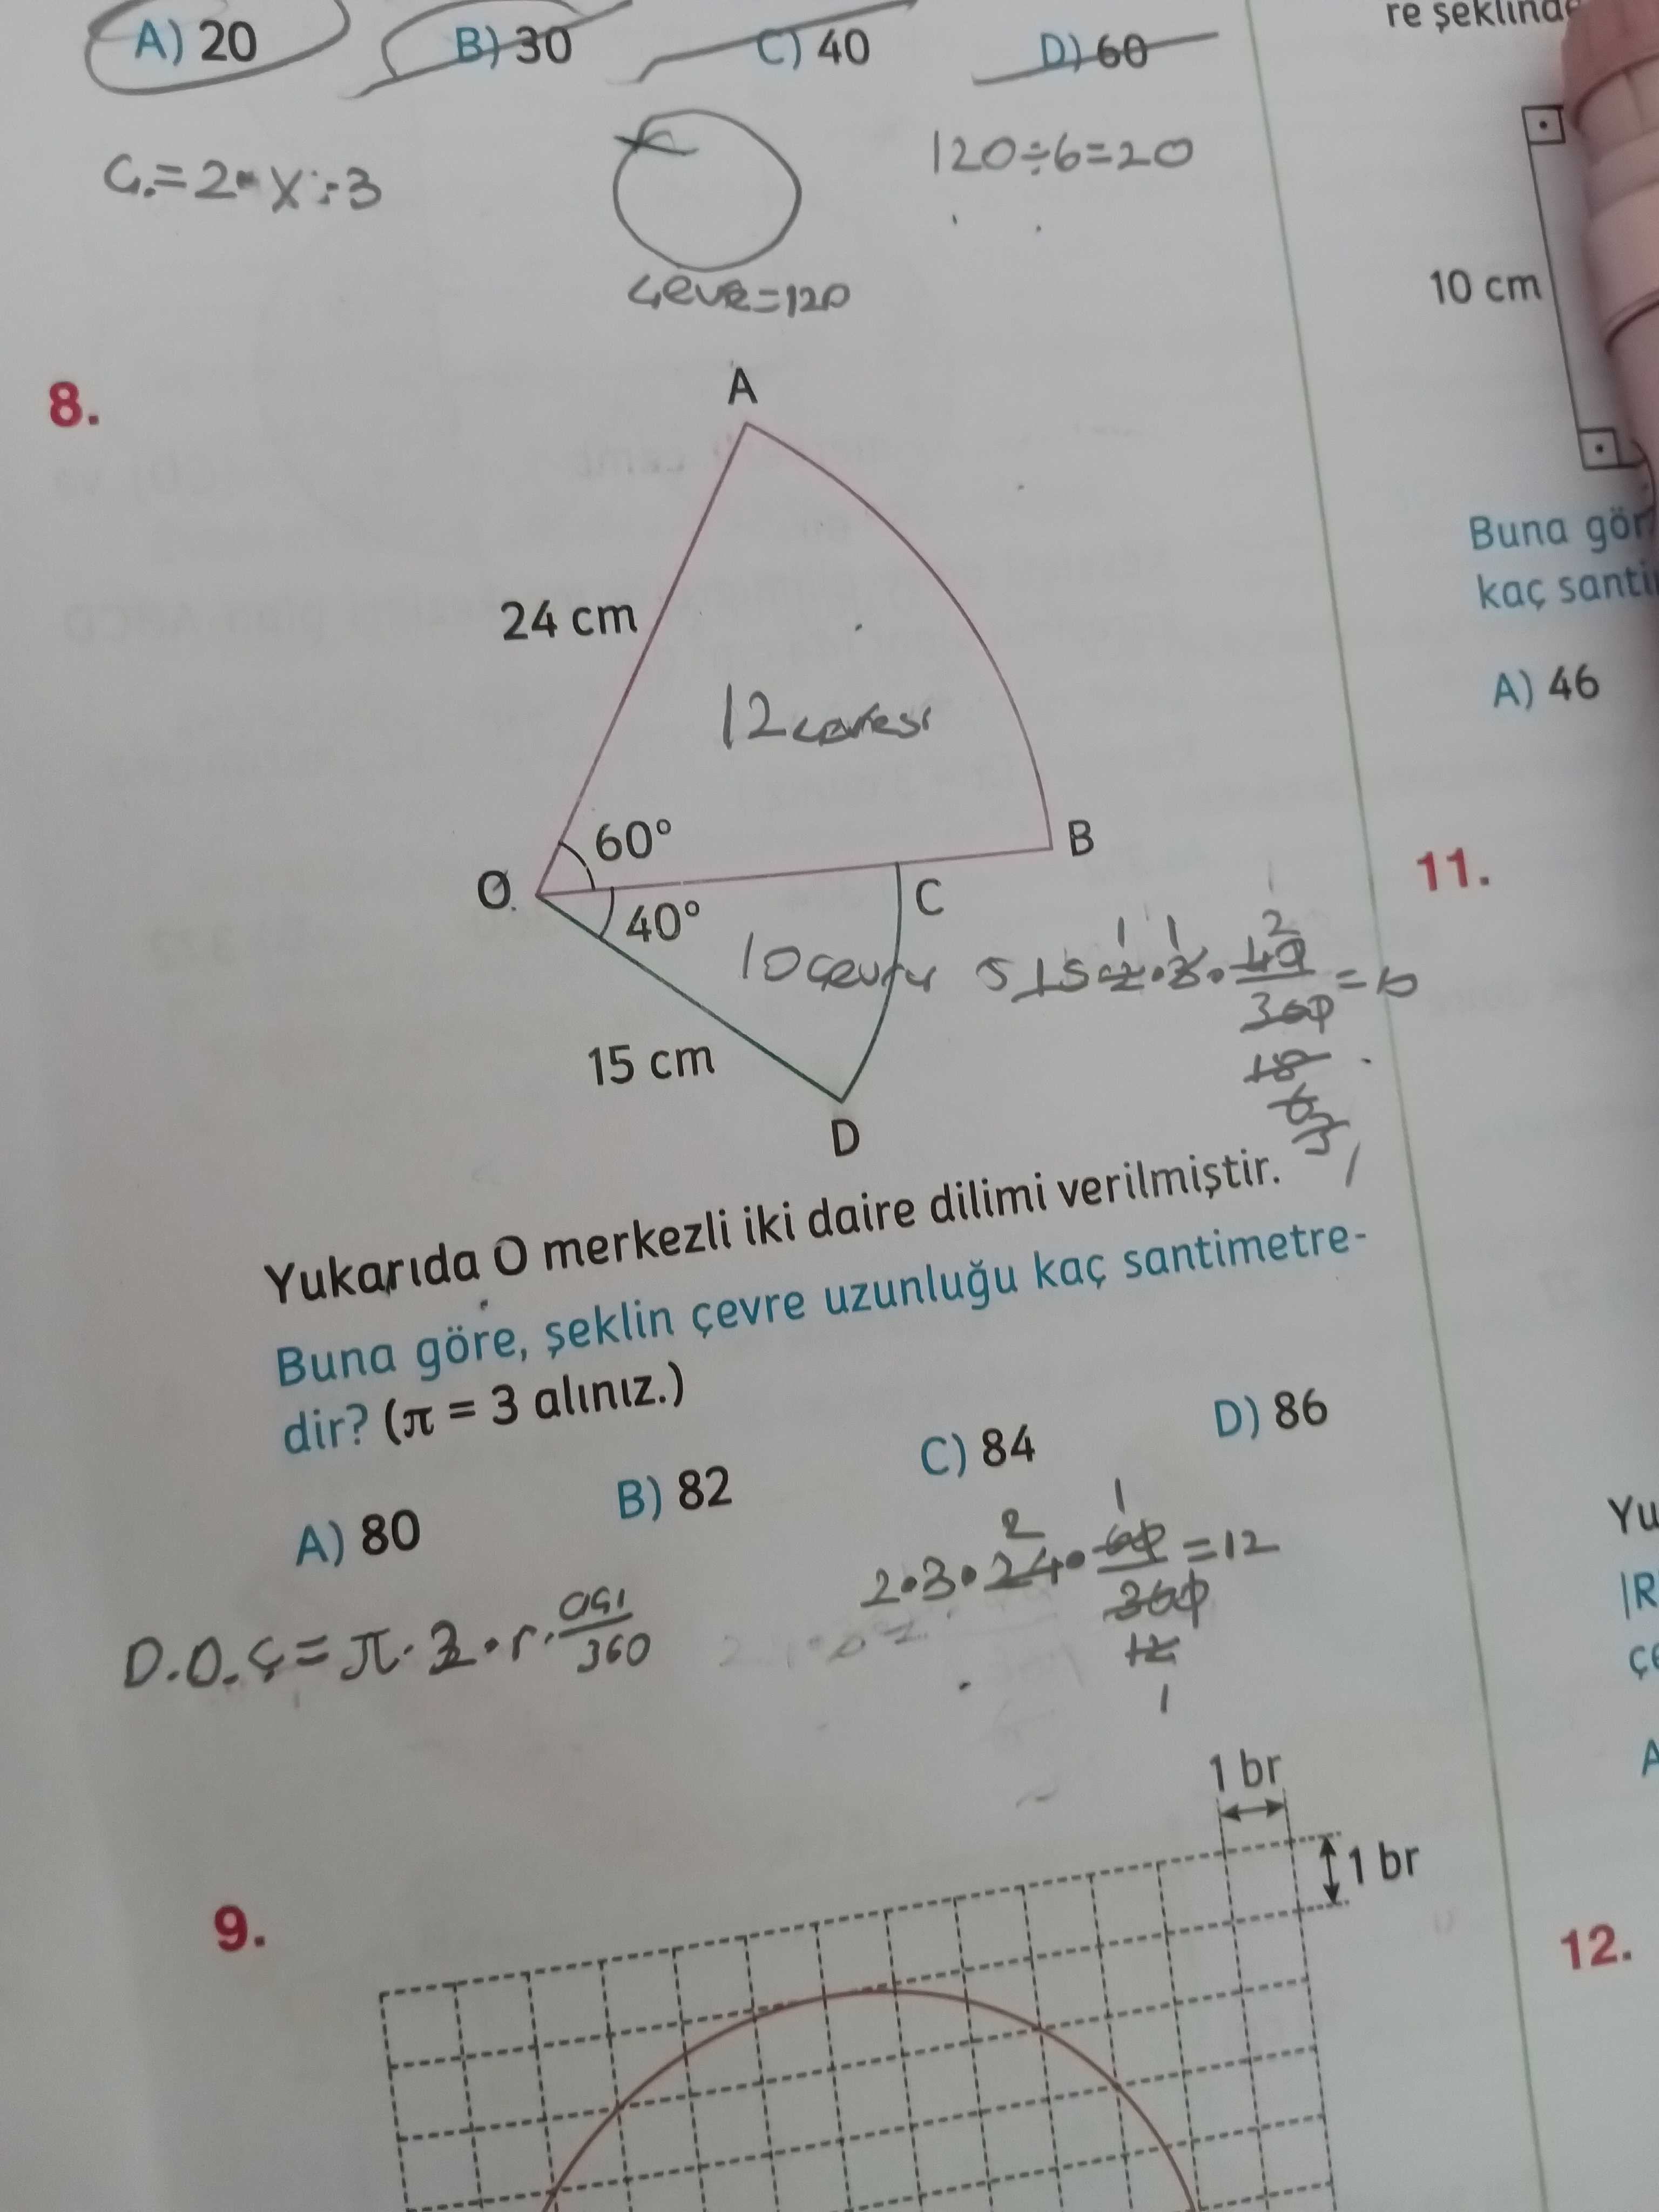 A) 20 B) 30 C) 40 D) 60
re şeklinde
Ç.=2·x·3
120÷6=20
Çevre=120
10 cm
8.
A
24 cm
12
60°
B
O
C
40°
10
15·2·3·40/360=10
15 cm
D
Yukarıda O merkezli iki daire dilimi verilmiştir.
Buna göre, şeklin çevre uzunluğu kaç santimetre-
dir? (π = 3 alınız.)
A) 80 B) 82 C) 84 D) 86
2·3·24·60/360=12
D.D.Ç=π·2·r·açı/360
9.
1 br
1 br
Buna gör
kaç santi
A) 46
11.
Yu
|R
çe
A
12.